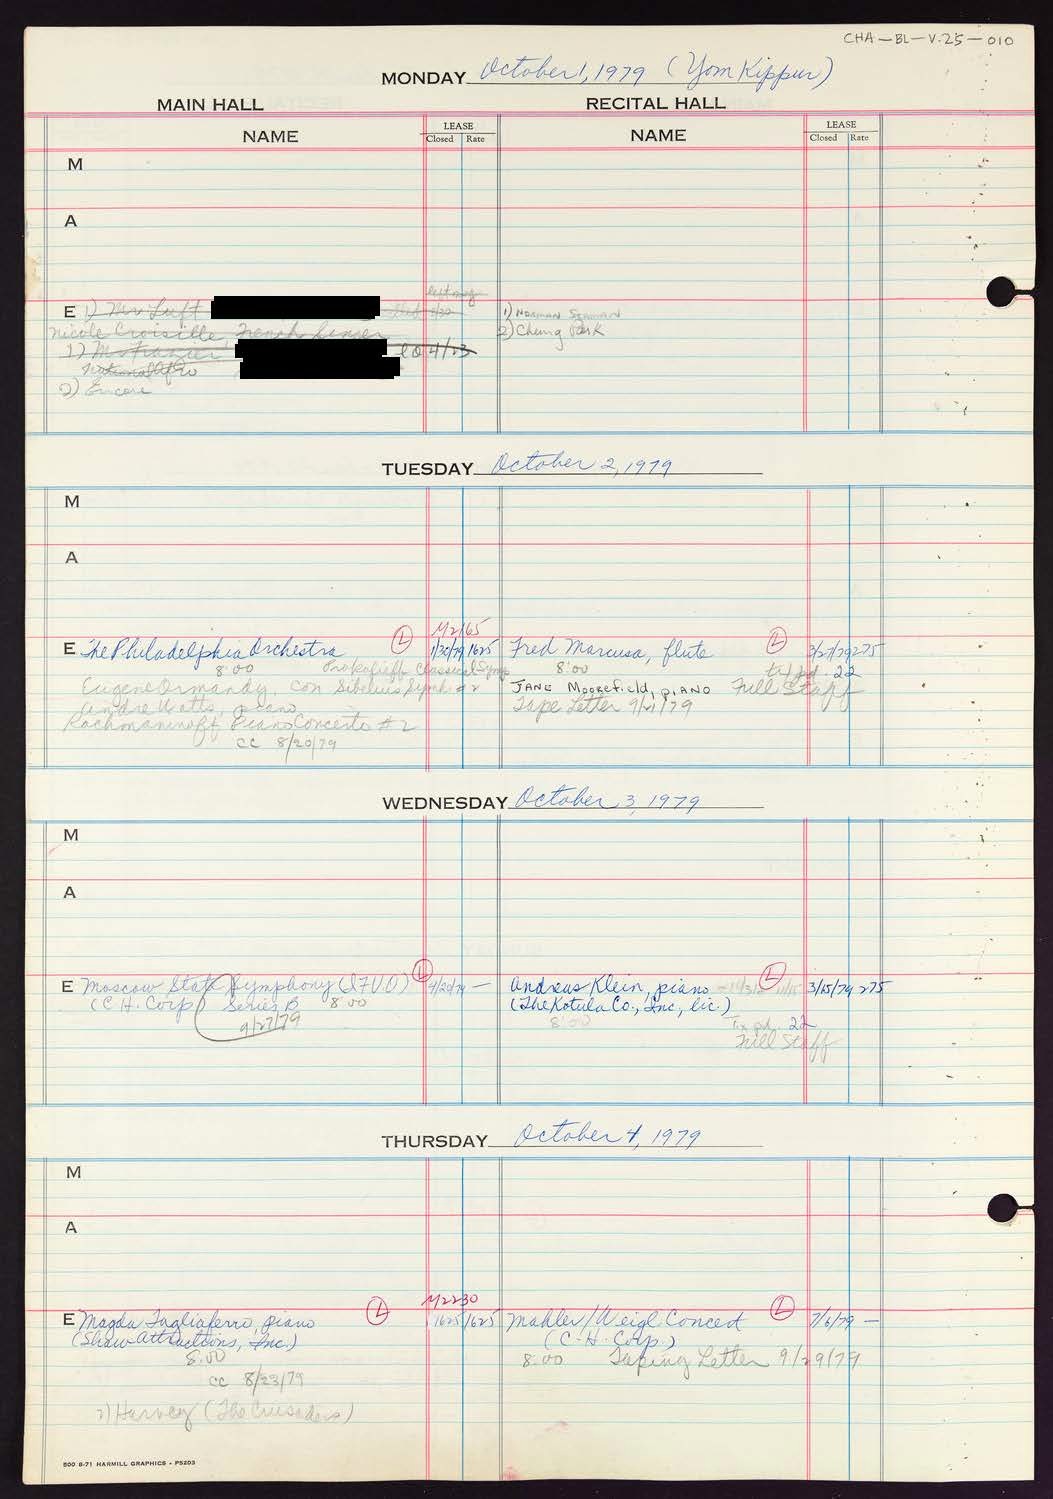 CHA-BL-V.25-010
MONDAY October 1, 1979 (Yom Kippur)
MAIN HALL RECITAL HALL
NAME LEASE Closed Rate NAME LEASE Closed Rate
M
A
E 1) Mr. Luft left msg
1) NORMAN SEAMAN
Nicole Croisille, French Singer
2) Chung Park
1) Mr. Frazier 4/23
2) Encore
TUESDAY October 2, 1979
M
A
M2165
E The Philadelphia Orchestra L 1/30/79 1625 Fred Marcusa, flute L 3/27/79 275
8:00 Prokofieff Classical Symp 8:00 22
Eugene Ormandy, con Sibelius Symph #2 JANE Moorefield, PIANO Full Staff
Andre Watts, piano Tape Letter 9/21/79
Rachmaninoff Piano Concerto #2
CC 8/20/79
WEDNESDAY October 3, 1979
M
A
E Moscow State Symphony (IFVO) L 4/20/79 — Andreas Klein, piano L 3/15/79 275
(C.H. Corp) Series B 8:00 (The Kotula Co., Inc, lic.)
9/27/79 8:00 Tx pd. 22
Full Staff
THURSDAY October 4, 1979
M
A
M2230
E Magda Tagliaferro, piano L 1625 1625 Mahler/Weigl Concert L 7/6/79 —
(Shaw Attractions, Inc.) (C.H. Corp.)
8:00 8:00 Taping Letter 9/29/79
CC 8/23/79
2) Harvey (The Crusaders)
500 8-71 HARMILL GRAPHICS - P5203